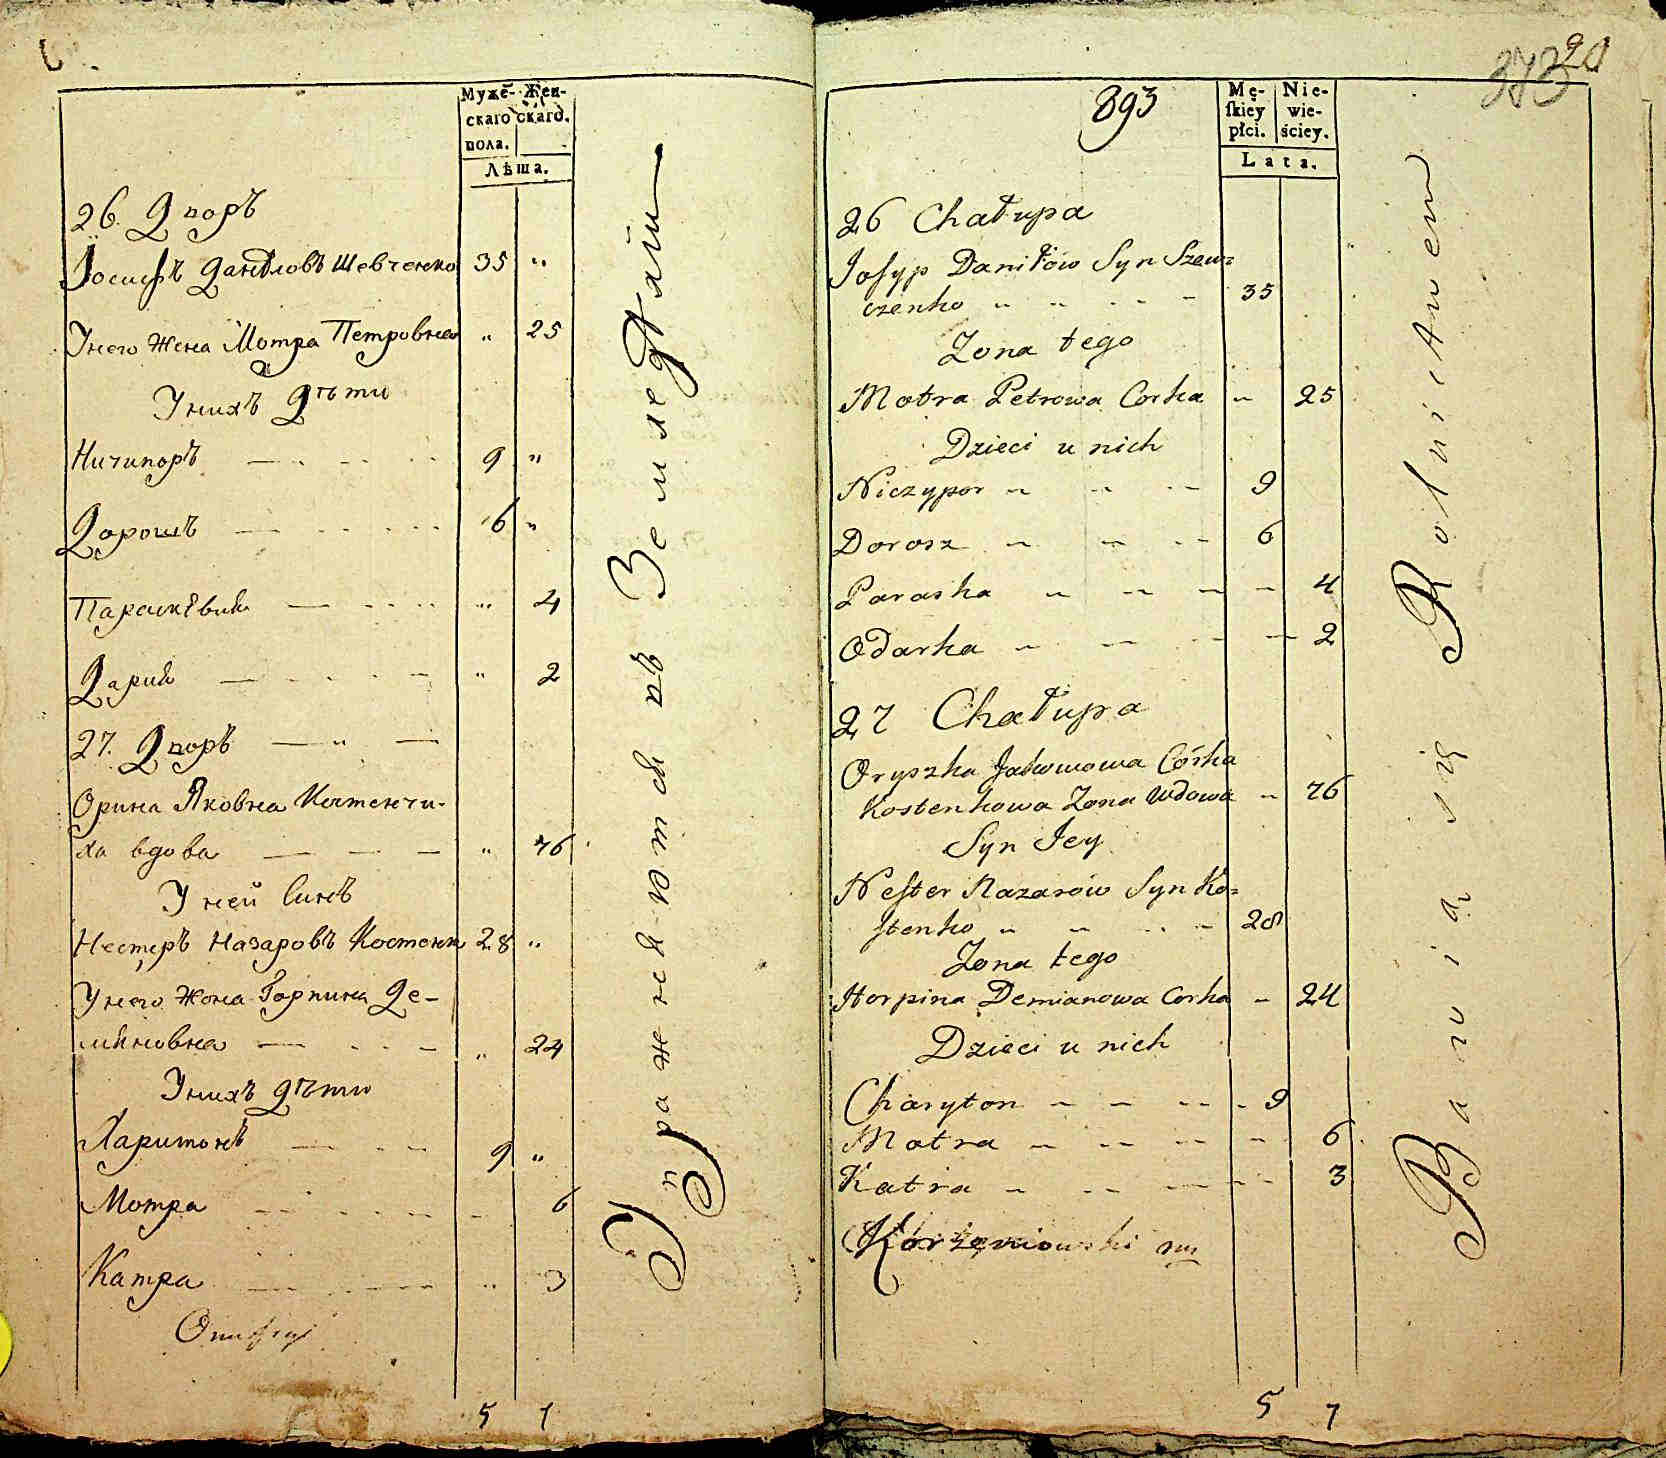 Мужé- Жен-
скаго скаго.
пола.
Лѣта.
26. Дворъ
Іосифъ Даниловъ Шевченко 35 "
Унего Жена Мотра Петровна " 25
Унихъ Дѣти
Ничипоръ 9 "
Дорошъ 6 "
Парасковия " 4
Дария " 2
27. Дворъ
Орина Яковна Костенчи-
ха вдова " 76
У ней Синъ
Нестеръ Назаровъ Костенко 28 "
Унего Жона Горпина Де-
мяновна " 24
Унихъ дѣти
Харитонъ 9 "
Мотра 6
Катра " 3
5 7
Упражняются въ Земледѣлии
893
373
20
Mę- Nie-
skiey wie-
płci. ściey.
Lata.
26 Chałupa
Josyp Daniłow Syn Szew=
czenko 35
Zona tego
Motra Petrowa Corka 25
Dzieci u nich
Niczypor 9
Dorosz 6
Paraska 4
Odarka 2
27 Chałupa
Oryszka Jakowowa Córka
Kostenkowa Zona Wdowa 76
Syn Jey
Nester Nazarów Syn Ko=
stenko 28
Zona tego
Horpina Demianowa Corka 24
Dzieci u nich
Charyton 9
Motra 6
Katra 3
Korzeniowski
5 7
Bawią się Rolnictwem